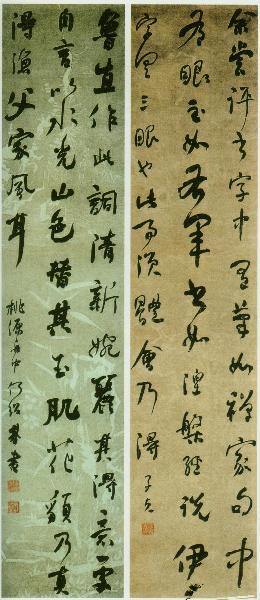 余嘗評書字中有筆如禪家句中
有眼至如右軍書如涅槃經說伊
字具三眼也此事須體會乃得 子貞
魯直作此詞清新婉麗其得意處
自言以水光山色替其玉肌花貌乃真
得漁父家風耳 桃源舟中 何紹基書